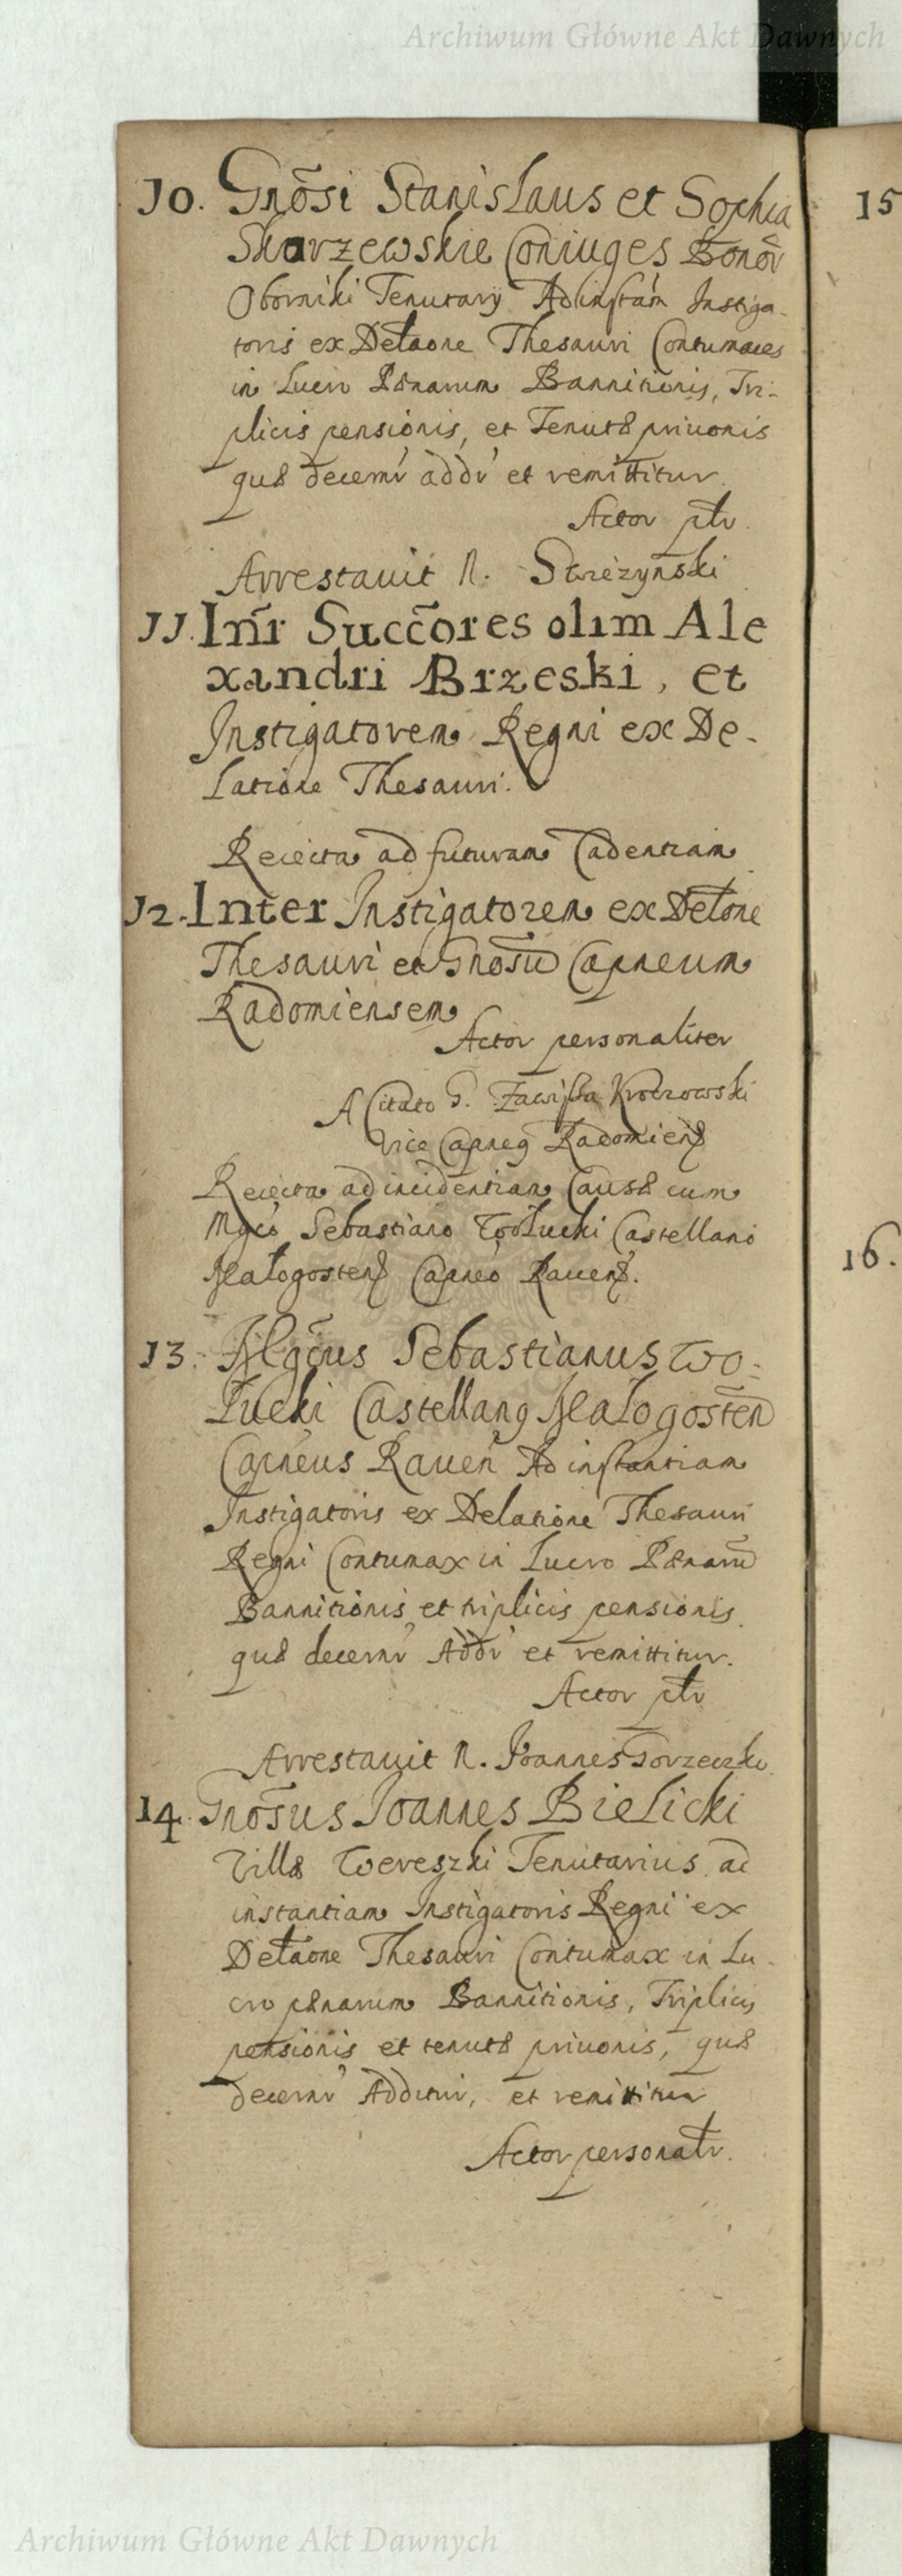 Archiwum Główne Akt Dawnych
10. Gnōsi Stanislaus et Sophia
Skarzewskie Coniuges Bonor̄
Oborniki Tenutary Ad instām Instiga-
toris ex Delaōne Thesauri Contumaces
in Lucro Pænarum Bannitionis, Tri-
plicis pensionis, et Tenutæ priuōnis
quæ decernr̄ addr̄ et remittitur.
Actor plr.
Arrestauit N. Strezynski
11. Inr̄ Succōres olim Ale
xandri Brzeski, et
Instigatorem Regni ex De-
latione Thesauri.
Reiecta ad futuram Cadentiam
12. Inter Instigatorem ex Delōne
Thesauri et Gnōsū Capneum
Radomiensem
Actor personaliter
A Citato G. Zawisza Krotrowski
Vice Capneg Radomiens
Reiecta ad incidentiam Causæ cum
Mgco Sebastiano Wolucki Castellano
Malogostens Capneo Rauens.
13. Mgcus Sebastianus Wo-
lucki Castellang Malogosten
Capneus Rauen Ad instantiam
Instigatoris ex Delatione Thesauri
Regni Contumax in Lucro Pænarū
Bannitionis et triplicis pensionis
quæ decernr̄ Addr̄ et remittitur.
Actor plr
Arrestauit N. Joannes Gorzeczki.
14. Gnōsus Joannes Bielicki
Villæ Wereszki Tenutarius ad
instantiam Instigatoris Regni ex
Delaōne Thesauri Contumax in Lu-
cro pænarum Bannitionis, Triplicis
pensionis et tenutæ priuonis, quæ
decernr̄ Additur, et remittitur
Actor personalr.
15
16.
Archiwum Główne Akt Dawnych